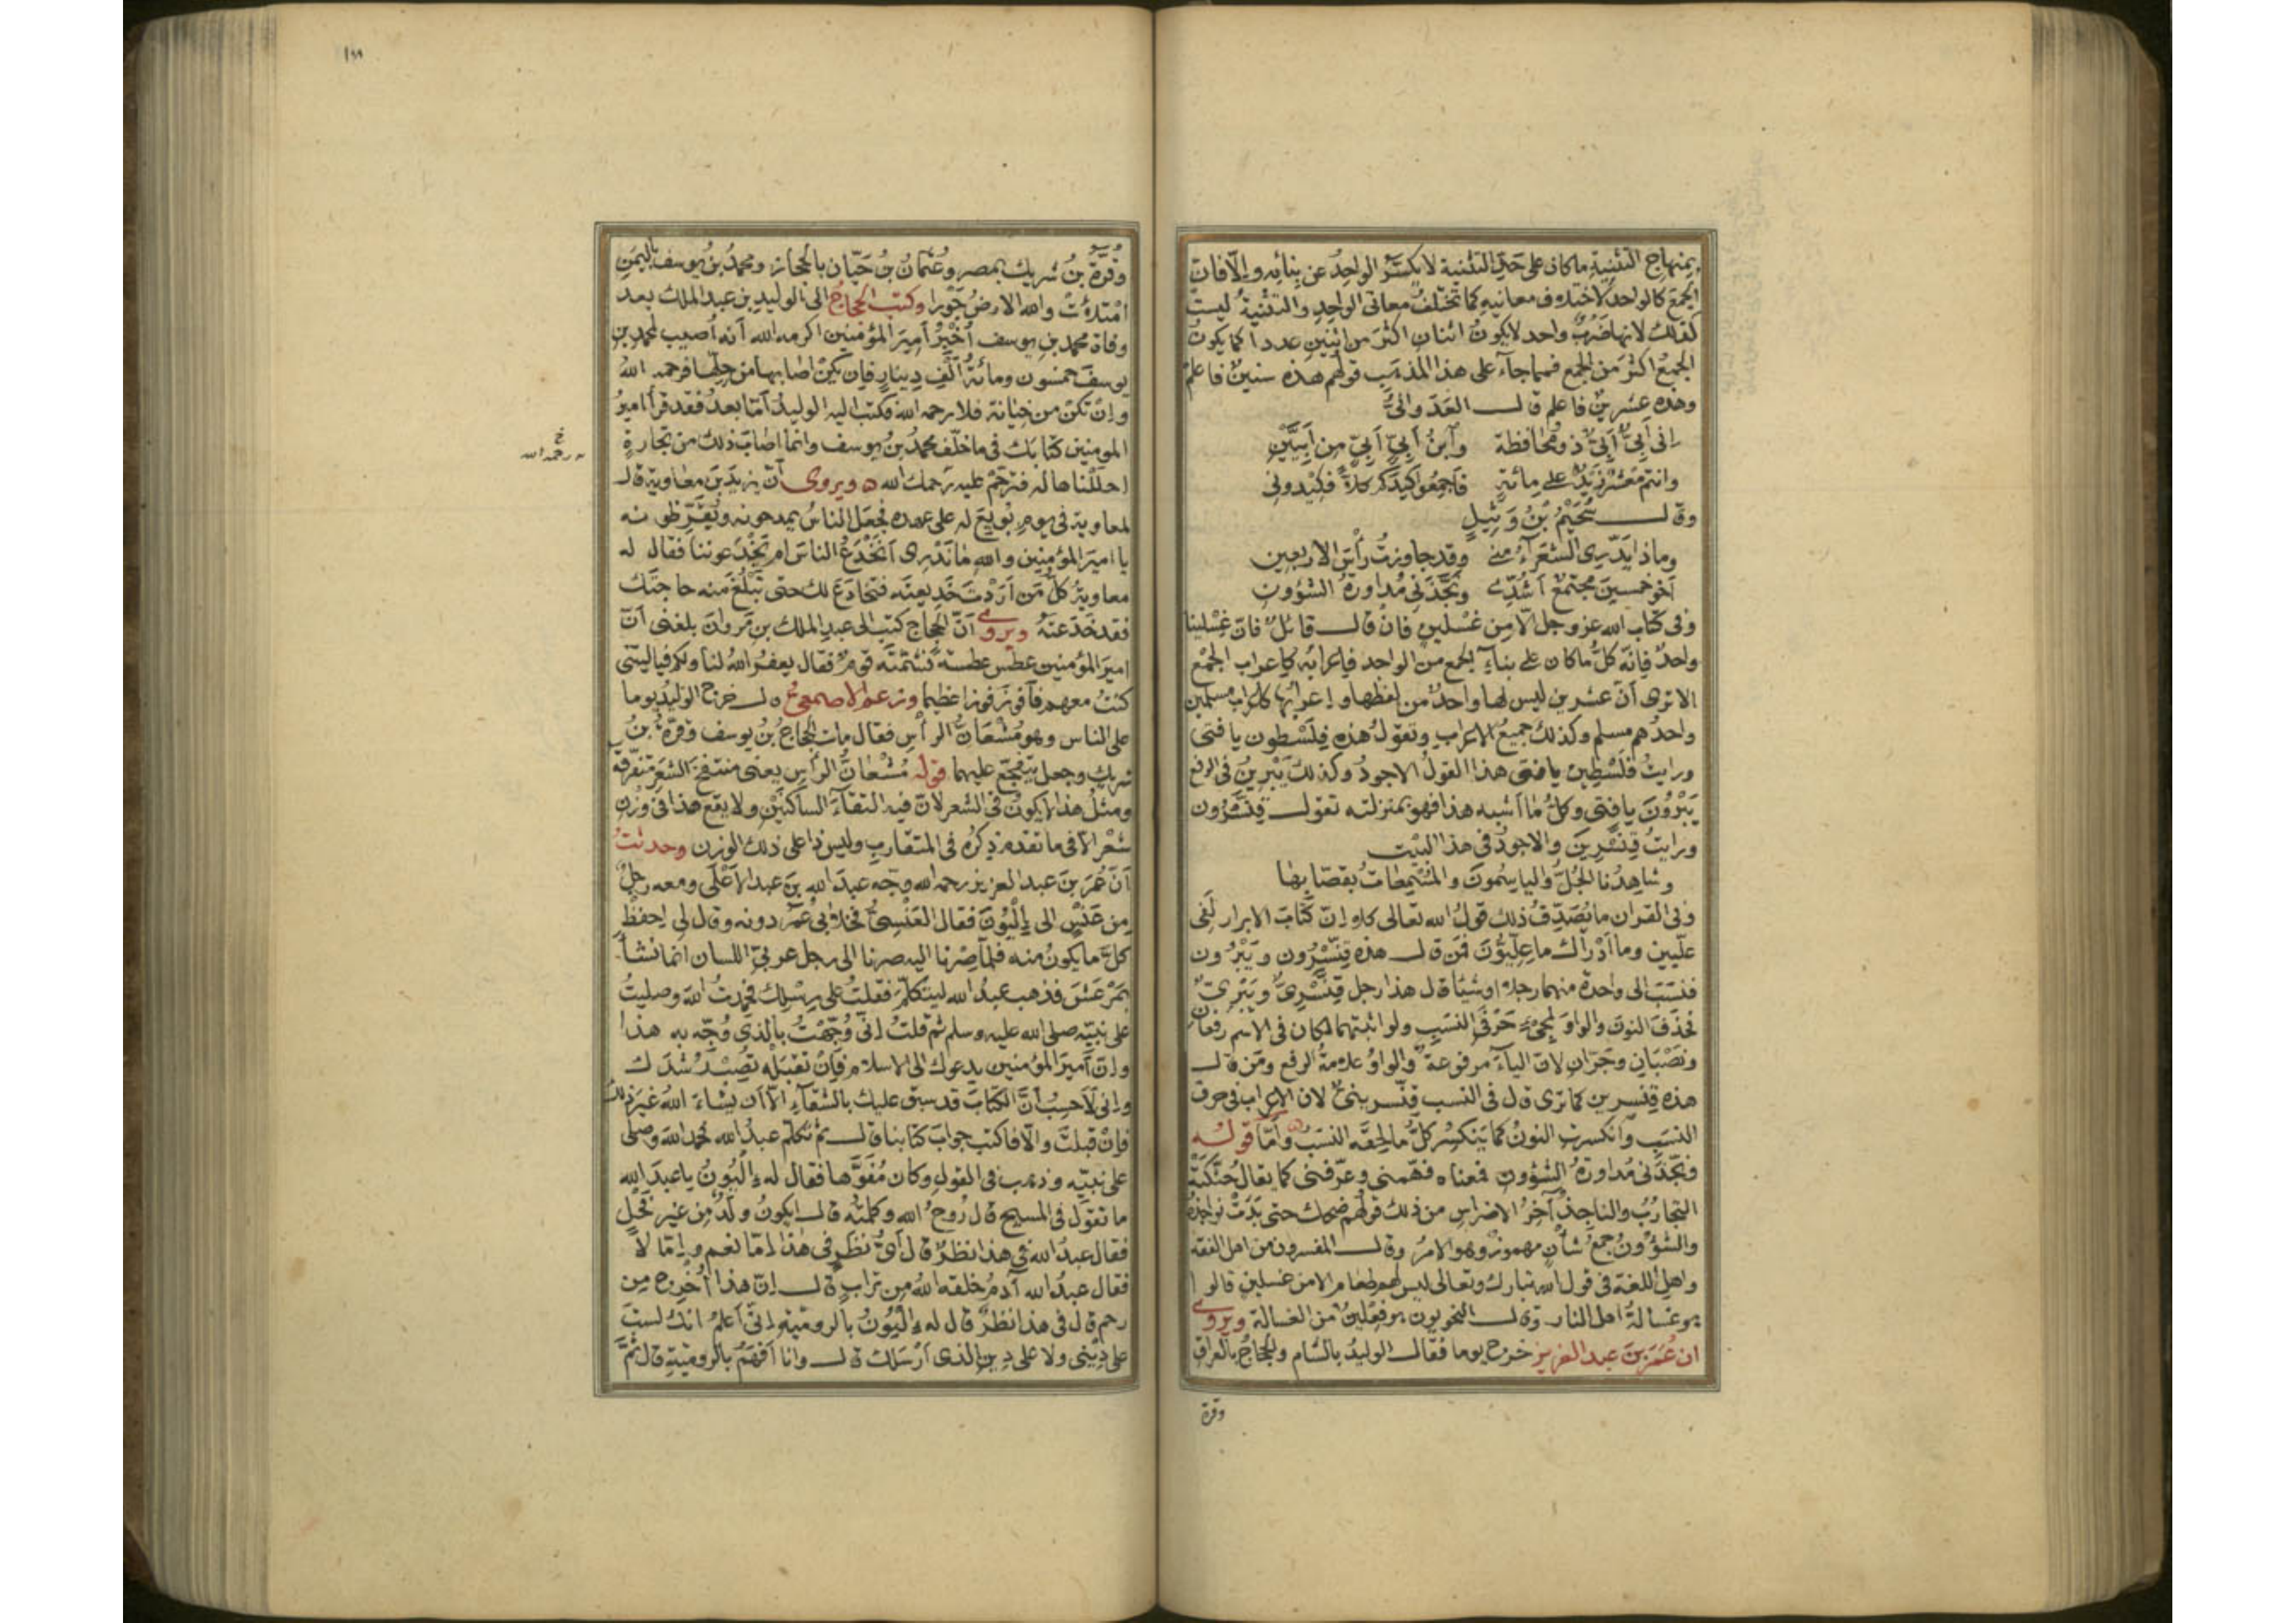 بمنهاج التثنية ما كان على حدّ التثنية لا يكسّر الواحدُ عن بنائِه والّا فانّ
الجمعَ كالواحد لاختلاف معانيه كما تختلفُ معانى الواحدِ والتثنيةُ ليست
كذلك لانها ضَرْبٌ واحد لا يكونُ اثنان اكثرَ من اثنين عددا كما يكونُ
الجمعُ اكثرَ من الجمع فمما جاء على هذا المذهب قولهم هذه سنينٌ فاعلم
وهذه عشرينٌ فاعلم قال العَدَوانىُّ
انى أَبِىٌّ أَبِىٌّ ذو محافظة وٱبنُ أَبِىٍّ أَبِىٍّ من أَبِيّينِ
وانتم مَعْشَرٌ زَيْدٌ على مائةٍ فاجمِعُوا كيدكم كلّاً فكيدونِى
وقال سُحَيْمُ بنُ وَثِيلٍ
وماذا يدّرى الشعراءُ منّى وقد جاوزتُ رأسَ الاربعينِ
أخو خمسينَ مجتمعٌ أشُدّى ونجّذنى مداورةُ الشؤون
وفى كتاب الله عز وجل الّا مِن غسلينٍ فان قال قائل فانّ غسلينا
واحدٌ فانه كلُّ ما كان على بناءِ الجمع من الواحد فإعرابُه كإعراب الجمع
الا ترى أنّ عشرين ليس لها واحدٌ من لفظها وإعرابُها كإعراب مسلمين
واحدُهم مسلم وكذلك جميعُ الاعراب وتقولُ هذه فلسطون يا فتى
ورايتُ فلسطين يا فتى هذا القولُ الاجودُ وكذلك يَبْرِينُ فى الرفع
يَبْرُونَ يا فتى وكلُّ ما أشبه هذا فهو بمنزلته تقول قِنَّسْرُون
ورايتُ قِنَّسْرِينَ والاجودُ فى هذا البيت
وشاهِدُنا الجُلُّ والياسمُونَ والمُسْمِعاتُ بقصّابها
وفى القران ما يُصَدِّقُ ذلك قولُ الله تعالى كلا إنّ كتابَ الابرار لفى
علّيين وما أدْراك ما عِلّيُّونَ فمن قال هذه قِنَّسْرُون ويَبْرُون
فنسَبَ الى واحدة منهما رجلا او شيئا قال هذا رجل قِنَّسْرِىٌّ ويَبْرِىٌّ
فحذَفَ النونَ والواوَ لمجىء حَرْفَى النسَبِ ولو اثبتهما لكان فى الاسم رفعان
ونصْبانِ وجَرّانِ لانّ الياءَ مرفوعة والواوَ علامةُ الرفع ومَن قال
هذه قِنَّسرين كما ترى قال فى النسب قِنَّسرينىٌّ لان الإعرابَ فى حرف
النسَبِ وٱنكسرت النونُ كما يَنكسِر كلُّ ما لحِقَه النسَبُ وأمّا قوله
ونجّذنى مُداورةُ الشؤون فمعناه فهّمنى وعرّفنى كما يقال حنّكته
التجاربُ والناجذُ آخِرُ الاضراس من ذلك قولهم ضحك حتى بَدَتْ نواجذه
والشؤونُ جمعُ شأنٍ مهموزٌ وهو الامرُ وقال المفسرون من اهل الفقه
واهلُ اللغة فى قول الله تبارك وتعالى ليس لهم طعام الا من غسلين قالوا
هو غسالةُ اهل النار وقال النحويون هو فِعْلينٌ من الغسالة ويروى
ان عُمَرَ بنَ عبد العزيز خرج يوما فقال الوليدُ بالشام والحجاجُ بالعراق
وقرة
١٩٩
وقُرّةُ بنُ شريك بمصر وعُثمانُ بنُ حَيّان بالحجاز ومحمدُ بنُ يوسف باليمن
امتلأتْ والله الارضُ جَوْرا وكتب الحجاجُ الى الوليد بن عبد الملك بعد
وفاة محمد بن يوسف أُخبِرُ أميرَ المؤمنين اكرمه الله أنه أصيب لمحمد بن
يوسفَ خمسون ومائةُ ألْفِ دينارٍ فإن يكنْ اصابها من حِلّها فرحمه اللهُ
وإنْ تكنْ من خيانة فلا رحمه الله فكتب اليه الوليدُ أمّا بعدُ فقد قرأ اميرُ
المومنين كتابَك فى ما خلّف محمدُ بنُ يوسف وانما اصابَ ذلك من تجارةٍ
خ رحمه الله
احلَلْناها له فترحَّمْ عليه رحمك الله ويروى أنّ يزيدَ بنَ معاوية قال
لمعاوية فى يومِ بُويِعَ له على عهده فجعَلَ الناسُ يمدحونه ويُقَرِّظونه
يا اميرَ المؤمنين والله ما نَدْرى أنَخْدَعُ الناسَ ام يَخْدَعوننا فقال له
معاويةُ كلُّ من أرَدْتَ خَديعتَه فتخادَعَ لك حتى تَبْلُغَ منه حاجتَك
فقد خدَعتَهُ ويروى أنّ الحجاج كتب الى عبد الملك بن مَروانَ بلغنى أنّ
اميرَ المؤمنين عطَس عطسةً فشمّتَه قومٌ فقال يغفرُ اللهُ لنا ولكم فيا ليتنى
كنتُ معهم فأفوزَ فوزا عظيما وزعم الاصمعىُّ قال خرج الوليدُ يوما
على الناس وهو مُشْعانُّ الرأسِ فقال مات الحجاجُ بنُ يوسف وقرّةُ بنُ
شريك وجعل يتفجّع عليهما قوله مُشْعانُّ الرأس يعنى منتفخَ الشعر متفرقه
ومثلُ هذا لا يكونُ فى الشعر لانّ فيه التقاءَ الساكنَيْن ولا يقع هذا فى وزن
شعْر الّا فى ما تقدم ذِكرُه فى المتقارِب وليس ذا على ذلك الوزن وحدثتُ
أنّ عُمرَ بنَ عبد العزيز رحمه الله وجّه عبدَ الله بنَ عبد الأعْلَى ومعه رجلٌ
من عَنْسٍ الى إلْيُونَ فقال العَنْسِىُّ فخلا بى عُمَر دونه وقال لى احفظْ
كلَّ ما يكونُ منه فلمّا صِرْنا اليه صرنا الى رجل عربىّ اللسان انما نشأ
بمَرْعَشَ فذهب عبدُ الله ليتكلّم فقلتُ على رِسْلِك فحمِدتُ اللهَ وصليتُ
على نبيّه صلى الله عليه وسلم ثم قلتُ إنّى وُجّهْتُ بالذى وُجّه به هذا
وإنّ أميرَ المؤمنين يدعوك الى الاسلام فإنْ تقبَلْه تُصِبْ رُشْدَك
وإنى لَأحسِبُ أنّ الكتابَ قد سبق عليك بالشقاءِ الّا أن يشاءَ اللهُ غيرَ ذلك
فإنْ قبلتَ والّا فاكتب جوابَ كتابنا قال ثم تكلّم عبدُ الله فحمِد اللهَ وصلّى
على نبيّه وذهب فى القول وكان مُفَوَّها فقال له إلْيُونُ يا عبدَ الله
ما تقول فى المسيح قال رُوحُ الله وكلمتُه قال ايكونُ ولَدٌ من غير فَحْلٍ
فقال عبدُ الله فى هذا نظَرٌ قال أىُّ نظَرٍ فى هذا إمّا نعم وإمّا لا
فقال عبدُ الله آدمُ خلقه اللهُ من ترابٍ قال إنّ هذا أُخرِج مِن
رحم قال فى هذا نظَرٌ قال له إلْيُونُ بالرومية إنّى أعلمُ انك لستَ
على دِينى ولا على دِينِ الذى أرْسَلك قال وانا أفهَمُ بالرومية قال ثُمّ